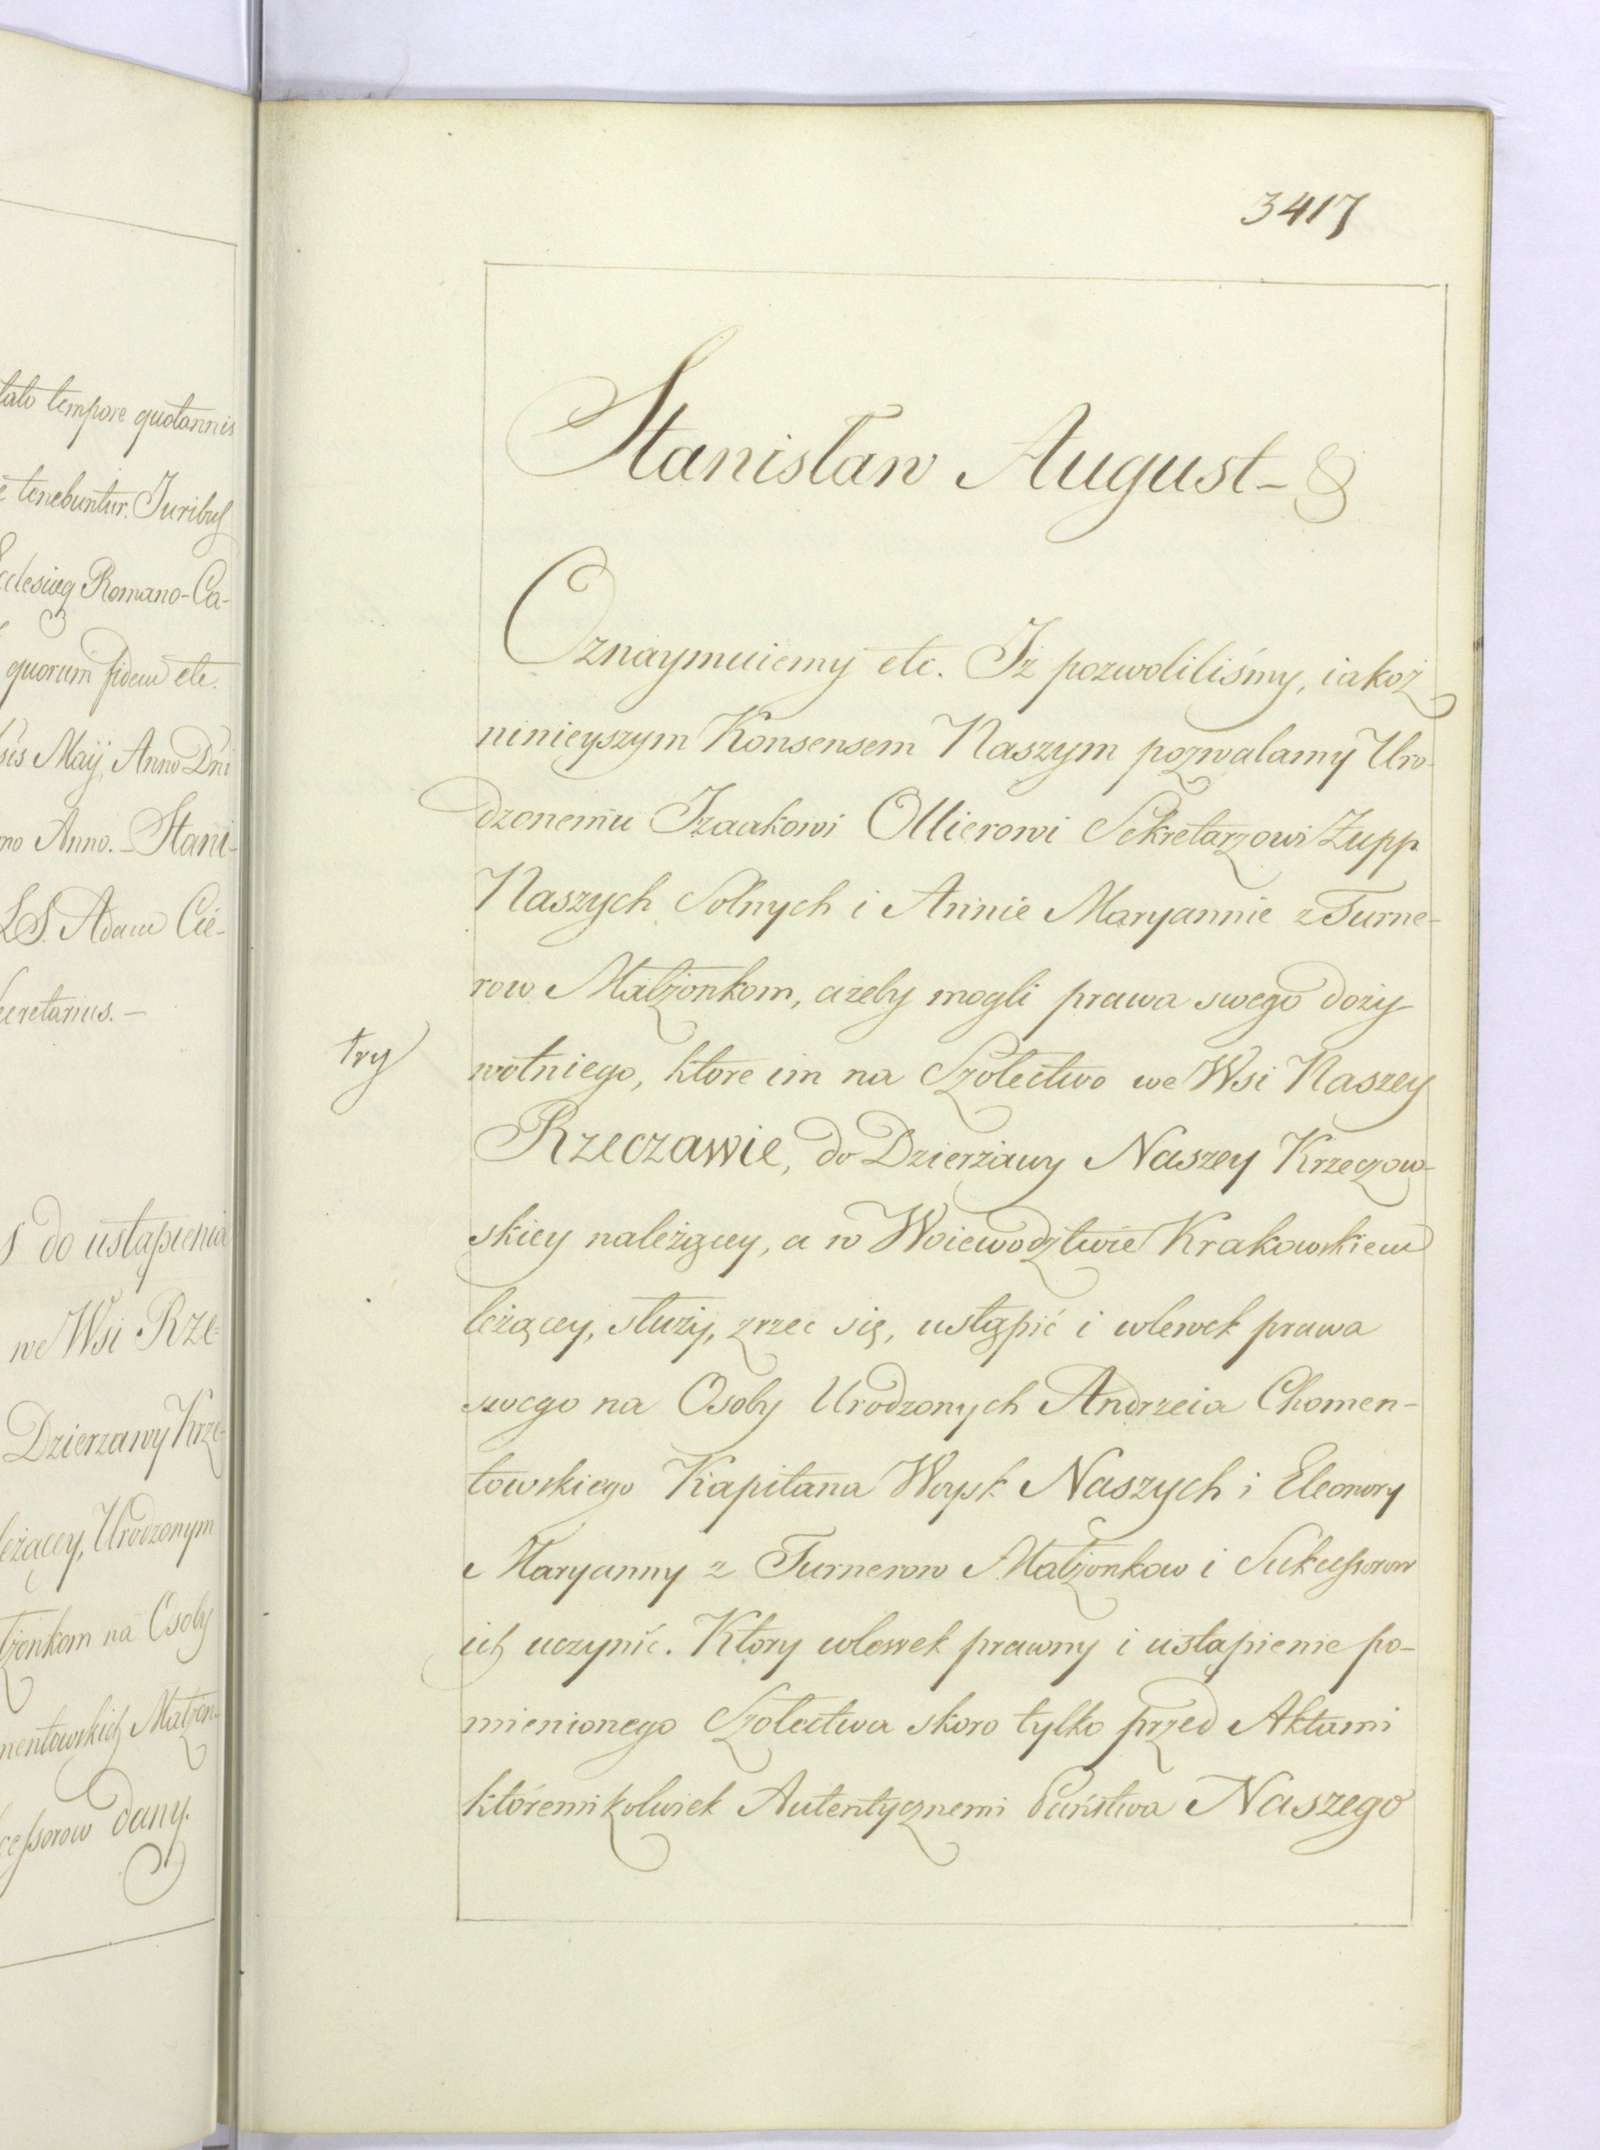 tato tempore quotannis
e tenebuntur. Juribus
Ecclesiæq Romano-Ca-
quorum fidem etc.
sis Maÿ, Anno Dni
mo Anno. - Stani-
LS. Adam Cie-
Secretarius. -
S do ustąpienia
we Wsi Rze-
Dzierzawy Krze-
leżącey, Urodzonym
łżonkom na Osoby
mentowskich Małżon-
cessorow dany.
3417
Stanisław August-
Oznaymuiemy etc. Iż pozwoliliśmy, iakoż
ninieyszym Konsensem Naszym pozwalamy Uro-
dzonemu Izaakowi Ollierowi Sekretarzowi Żupp
Naszych Solnych i Annie Maryannie z Turne-
row Małżonkom, ażeby mogli prawa swego doży
try
wotniego, ktore im na Szołectwo we Wsi Naszey
Rzeczawie, do Dzierżawy Naszey Krzeczow-
skiey należącey, a w Woiewodztwie Krakowskiem
leżącey, służy, zrzec się, ustąpić i wlewek prawa
swego na Osoby Urodzonych Andrzeia Chomen-
towskiego Kapitana Woysk Naszych i Eleonory
Maryanny z Turnerow Małżonkow i Sukcessorow
ich uczynić. Ktory wlewek prawny i ustąpienie po-
mienionego Szołectwa skoro tylko przed Aktami
któremikolwiek Autentycznemi Państwa Naszego